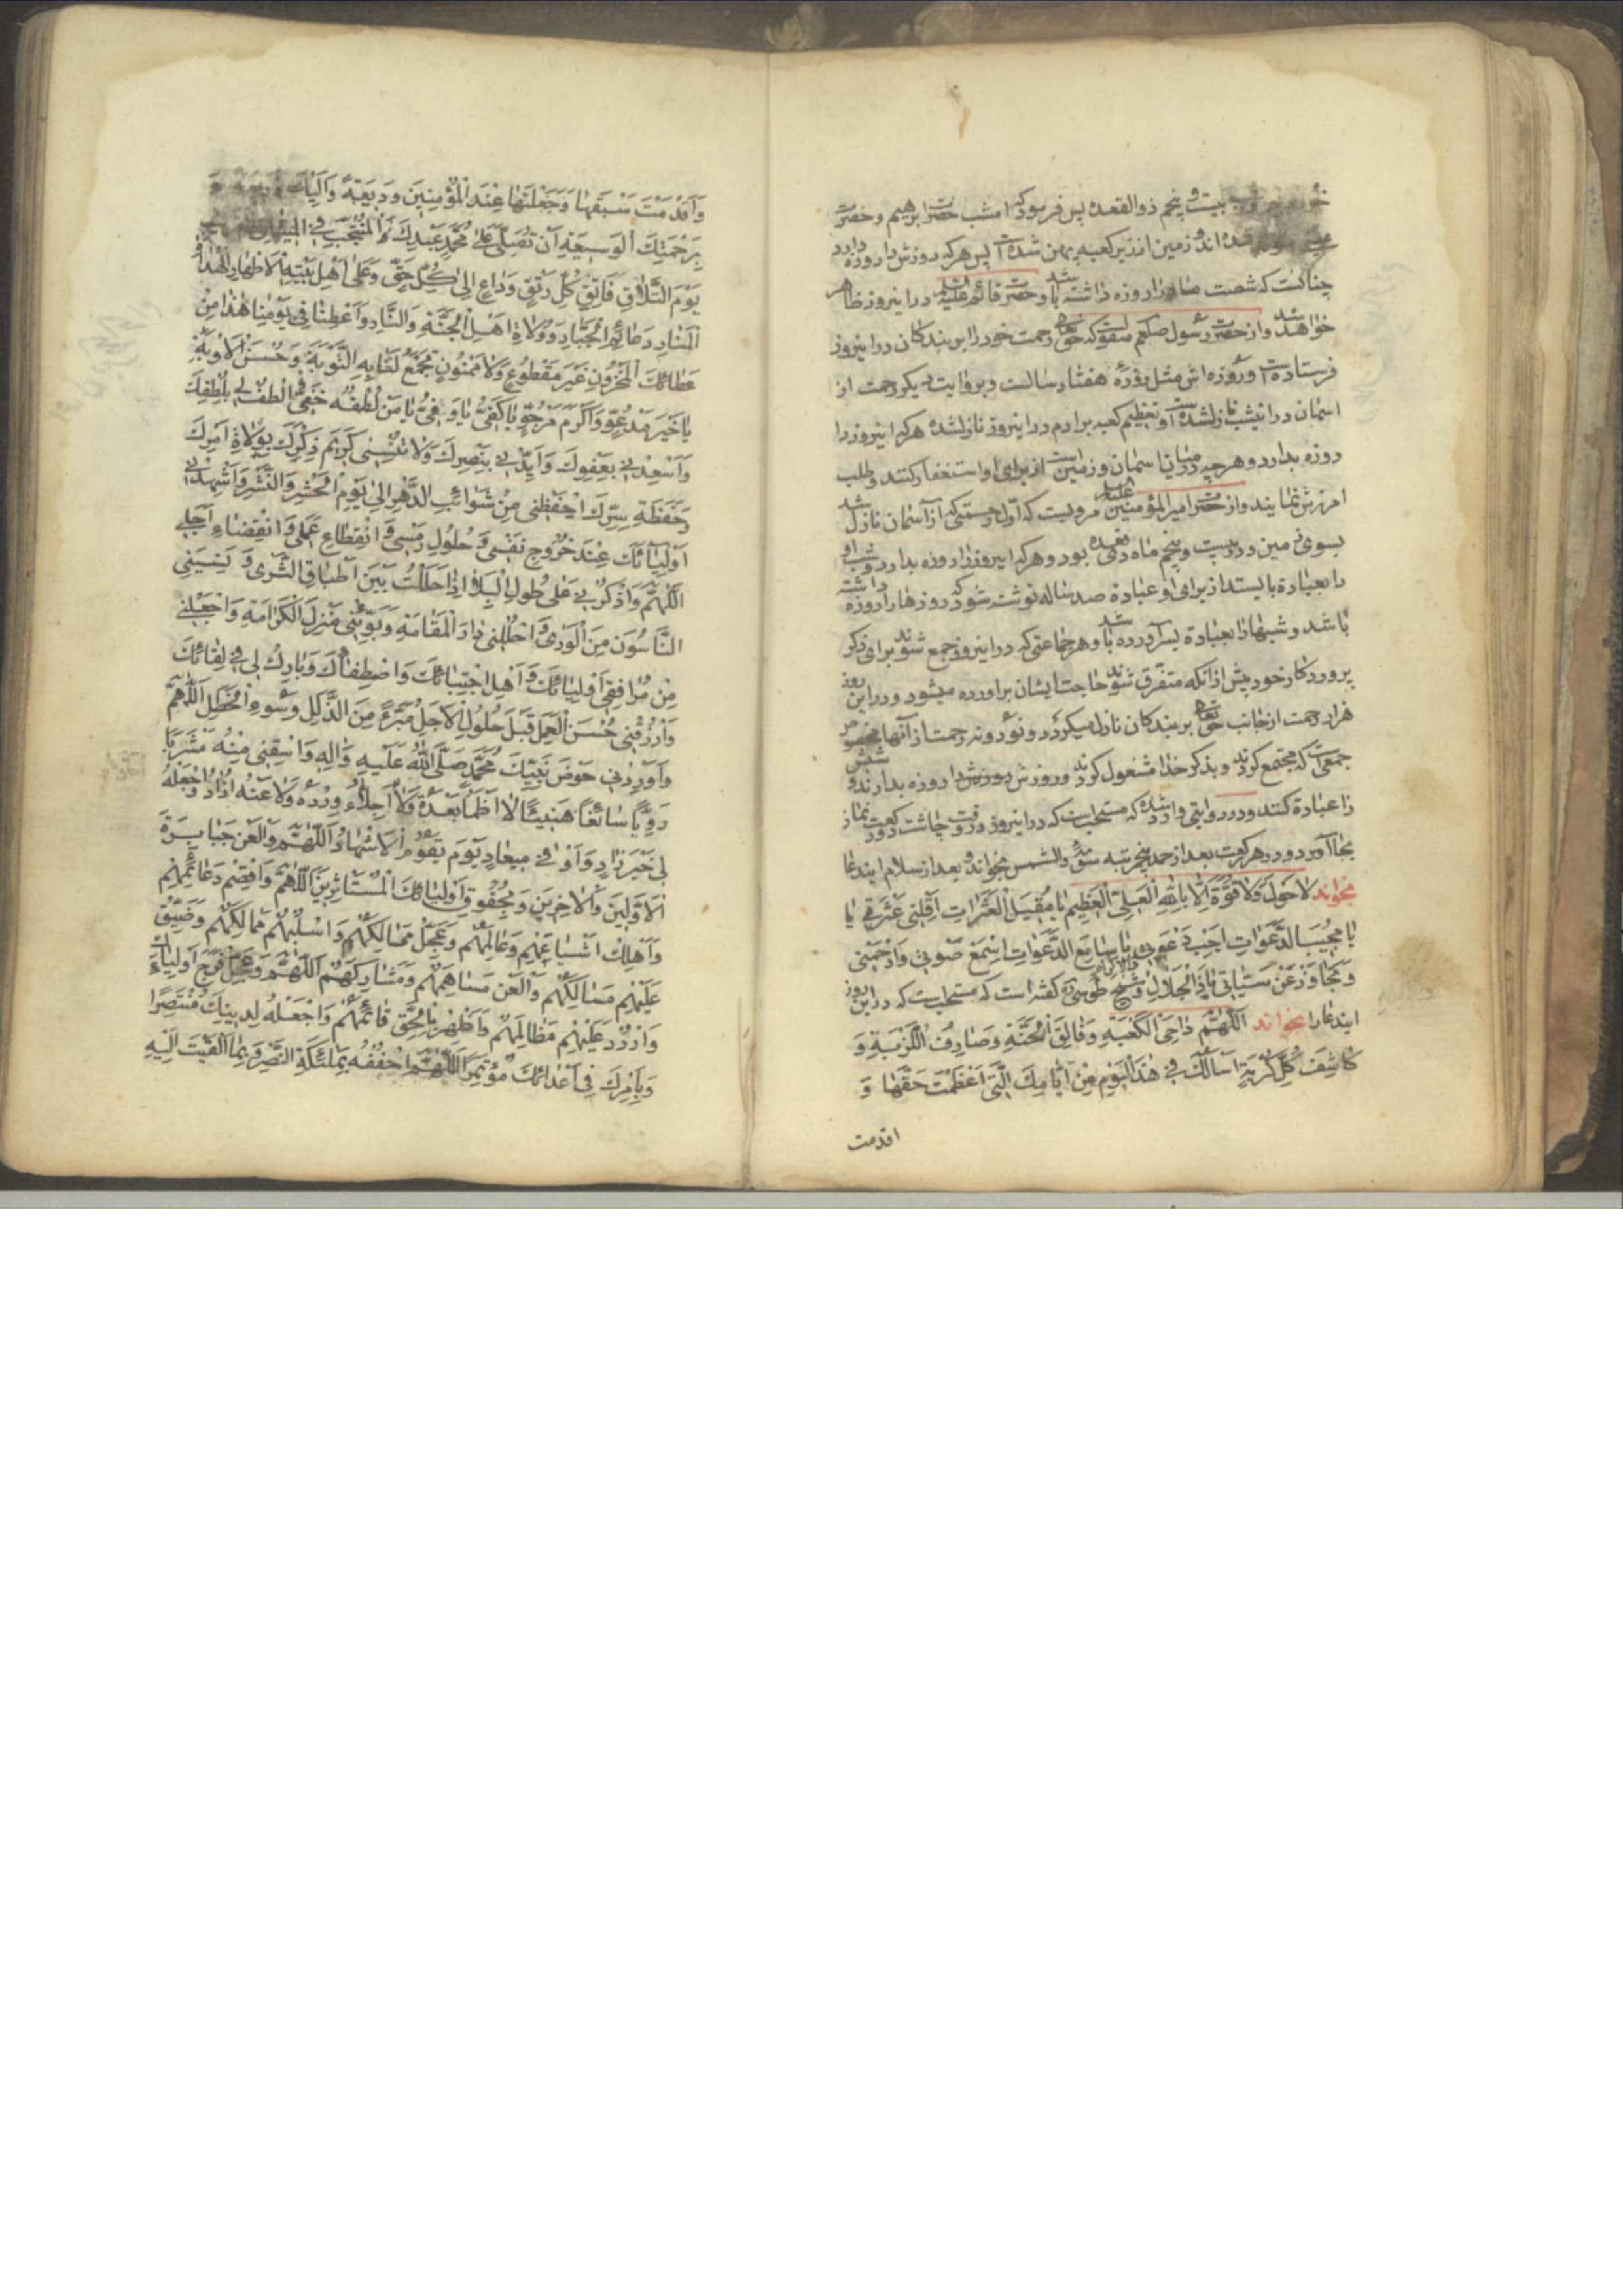 بیست و پنجم ذوالقعده پس فرمود که امشب حضرت ابرهیم و حضرت
شده اند و زمین از زیر کعبه پهن شده است پس هر که روزش را روزه دارد
چنانست که شصت ماه را روزه داشته باشد و حضرت قائم علیه السلام در اینروز ظاهر
خواهد شد و از حضرت رسول صلعم منقولست که حق تعالی رحمت خود را بر بندکان در اینروز
فرستاده است و روزه اش مثل روزهٔ هفتاد سالست و بروایت دیکر رحمت از
اسمان در اینشب نازلشده است و تعظیم کعبه بر ادم در اینروز نازلشده هر که اینروز را
روزه بدارد و هر چه در میان اسمان و زمین است از برای او استغفار کنند و طلب
امرزش نمایند و از حضرت امیر المؤمنین علیه السلام مرویست که اول رحمتی که از آسمان نازل شد
بسوی زمین در بیست و پنجم ماه ذی قعده بود و هر که اینروز را روزه بدارد و شب او
را بعبادة بایستد از برای او عبادة صد ساله نوشته شود که روزها را روزه داشته
باشد و شبها را بعبادة بسر آورده باشد و هر جماعتی که در اینروز جمع شوند برای ذکر
پروردکار خود پیش از انکه متفرق شوند حاجت ایشان براورده میشود و در این روز
هزار رحمت از جانب حق تعالی بر بندکان نازل میکردد و نود و نه رحمت از آنها مخصوص
جمعی است که مجتمع کردند و بذکر خدا مشغول کردند و روزش را روزه بدارند و شبش
را عبادة کنند و در روایتی وارد شده که مستحب است که در اینروز در وقت چاشت دو رکعت نماز
بجا آورد و در هر رکعت بعد از حمد پنجمرتبه سورهٔ والشمس بخواند و بعد از سلام ایندعا
بخواند لَا حَوْلَ وَلَا قُوَّةَ اِلَّا بِاللهِ الْعَلِیِّ الْعَظِیمِ یَا مُقِیلَ الْعَثَرَاتِ اَقِلْنِی عَثْرَتِی یَا
یَا مُجِیبَ الدَّعَوَاتِ اَجِبْ دَعْوَتِی یَا سَامِعَ الدَّعَوَاتِ اِسْمَعْ صَوْتِی وَارْحَمْنِی
وَتَجَاوَزْ عَنْ سَیِّئَاتِی یَا ذَا الْجَلَالِ وَالْاِکْرَامِ و شیخ طوسی ره کفته است که مستحب است که در این روز
ایندعا را بخواند اَللّٰهُمَّ دَاحِیَ الْکَعْبَةِ وَفَالِقَ الْحَبَّةِ وَصَارِفَ اللَّزْبَةِ وَ
کَاشِفَ کُلِّ کُرْبَةٍ اَسْأَلُكَ فِی هٰذَا الْیَوْمِ مِنْ اَیَّامِكَ الَّتِی اَعْظَمْتَ حَقَّهَا وَ
اقدمت
وَاَقْدَمْتَ سَبْقَهَا وَجَعَلْتَهَا عِنْدَ الْمُؤْمِنِینَ وَدِیعَةً وَاِلَیْكَ ذَرِیعَةً وَ
بِرَحْمَتِكَ الْوَسِیعَةِ اَنْ تُصَلِّیَ عَلٰی مُحَمَّدٍ عَبْدِكَ الْمُنْتَجَبِ فِی الْمِیثَاقِ
یَوْمَ التَّلَاقِ فَاتِقِ کُلِّ رَتْقٍ وَدَاعٍ اِلٰی کُلِّ حَقٍّ وَعَلٰی اَهْلِ بَیْتِهِ الْاَطْهَارِ الْهُدَاةِ
الْمَنَارِ دَعَائِمِ الْجَبَّارِ وَوُلَاةِ اهْلِ الْجَنَّةِ وَالنَّارِ وَاَعْطِنَا فِی یَوْمِنَا هٰذَا مِنْ
عَطَائِكَ الْمَخْزُونِ غَیْرَ مَقْطُوعٍ وَلَا مَمْنُونٍ تَجْمَعُ لَنَا بِهِ التَّوْبَةَ وَحُسْنَ الْاَوْبَةِ
یَا خَیْرَ مَدْعُوٍّ وَاَکْرَمَ مَرْجُوٍّ یَا کَفِیُّ یَا وَفِیُّ یَا مَنْ لُطْفُهُ خَفِیٌّ اُلْطُفْ لِی بِلُطْفِكَ
وَاَسْعِدْنِی بِعَفْوِكَ وَاَیِّدْنِی بِنَصْرِكَ وَلَا تُنْسِنِی کَرِیمَ ذِکْرِكَ بِوُلَاةِ اَمْرِكَ
وَحَفَظَةِ سِرِّكَ اِحْفَظْنِی مِنْ شَوَائِبِ الدَّهْرِ اِلٰی یَوْمِ الْحَشْرِ وَالنَّشْرِ وَاَشْهِدْنِی
اَوْلِیَائَكَ عِنْدَ خُرُوجِ نَفْسِی وَحُلُولِ رَمْسِی وَانْقِطَاعِ عَمَلِی وَانْقِضَاءِ اَجَلِی
اَللّٰهُمَّ وَاذْکُرْنِی عَلٰی طُولِ الْبِلٰی اِذَا حَلَلْتُ بَیْنَ اَطْبَاقِ الثَّرٰی وَنَسِیَنِی
النَّاسُونَ مِنَ الْوَرٰی وَاَحْلِلْنِی دَارَ الْمُقَامَةِ وَبَوِّئْنِی مَنْزِلَ الْکَرَامَةِ وَاجْعَلْنِی
مِنْ مُرَافِقِی اَوْلِیَائِكَ وَاَهْلِ اجْتِبَائِكَ وَاصْطِفَائِكَ وَبَارِكْ لِی فِی لِقَائِكَ
وَارْزُقْنِی حُسْنَ الْعَمَلِ قَبْلَ حُلُولِ الْاَجَلِ مُبَرَّءً مِنَ الزَّلَلِ وَسُوءِ الْخَطَلِ اَللّٰهُمَّ
وَاَوْرِدْنِی حَوْضَ نَبِیِّكَ مُحَمَّدٍ صَلَّی اللهُ عَلَیْهِ وَاٰلِهِ وَاسْقِنِی مِنْهُ مَشْرَبًا
رَوِیًّا سَائِغًا هَنِیئًا لَا اَظْمَأُ بَعْدَهُ وَلَا اُحَلَّاءُ وِرْدَهُ وَلَا عَنْهُ اُذَادُ وَاجْعَلْهُ
لِی خَیْرَ زَادٍ وَاَوْفٰی مِیعَادٍ یَوْمَ یَقُومُ الْاَشْهَادُ اَللّٰهُمَّ وَالْعَنْ جَبَابِرَةَ
الْاَوَّلِینَ وَالْاٰخِرِینَ وَبِحُقُوقِ اَوْلِیَائِكَ الْمُسْتَأْثِرِینَ اَللّٰهُمَّ وَاقْصِمْ دَعَائِمَهُمْ
وَاَهْلِكْ اَشْیَاعَهُمْ وَعَامِلَهُمْ وَعَجِّلْ مَهَالِکَهُمْ وَاسْلُبْهُمْ مَمَالِکَهُمْ وَضَیِّقْ
عَلَیْهِمْ مَسَالِکَهُمْ وَالْعَنْ مَسَاهِمَهُمْ وَمَشَارِکَهُمْ اَللّٰهُمَّ وَعَجِّلْ فَرَجَ اَوْلِیَائِكَ
وَارْدُدْ عَلَیْهِمْ مَظَالِمَهُمْ وَاَظْهِرْ بِالْحَقِّ قَائِمَهُمْ وَاجْعَلْهُ لِدِینِكَ مُنْتَصِرًا
وَبِاَمْرِكَ فِی اَعْدَائِكَ مُؤْتَمِرًا اَللّٰهُمَّ احْفُفْهُ بِمَلٰئِکَةِ النَّصْرِ وَبِمَا اَلْقَیْتَ اِلَیْهِ